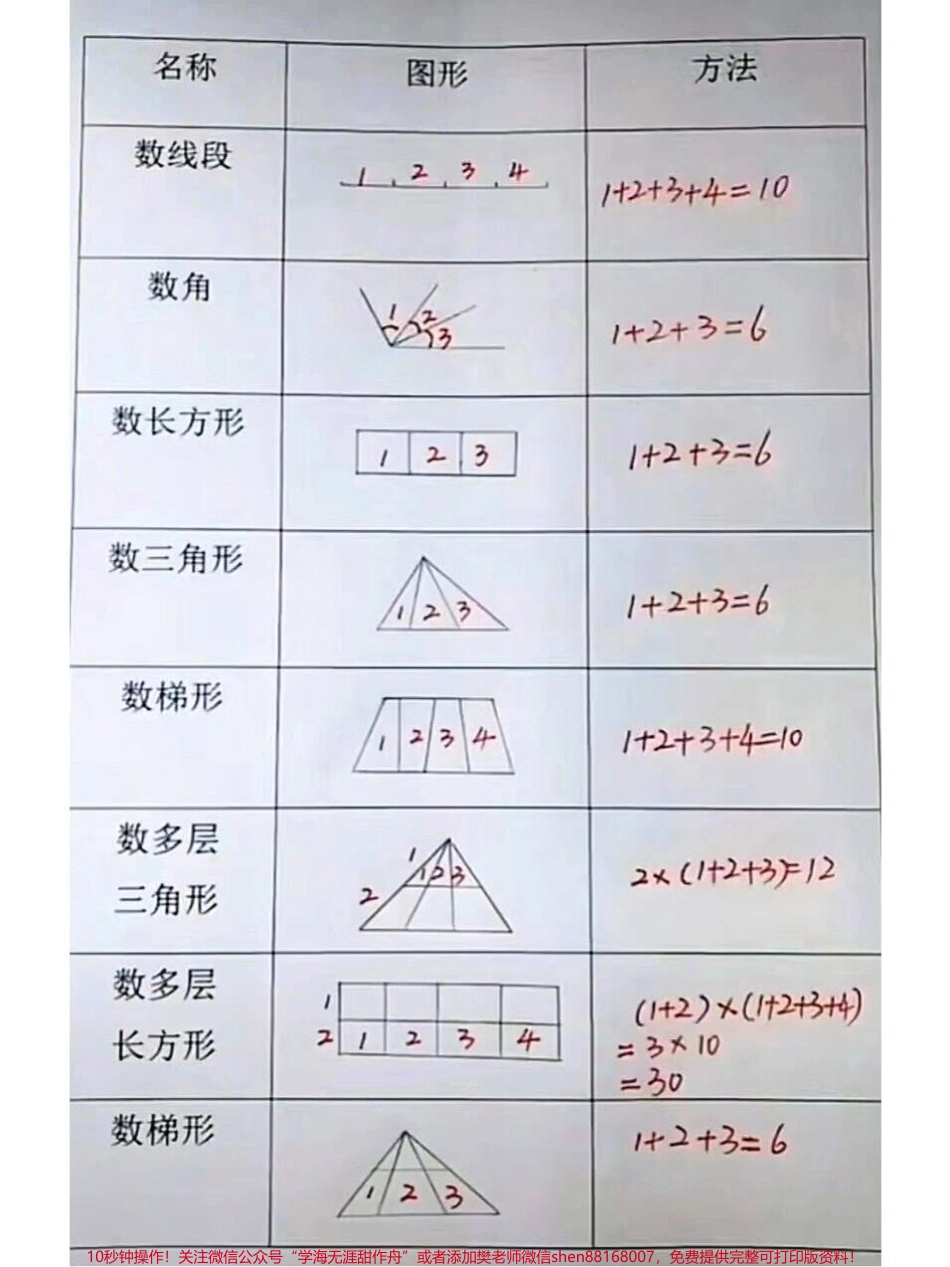 名称 图形 方法
数线段 1 2 3 4 1+2+3+4=10
数角 1 2 3 1+2+3=6
数长方形 1 2 3 1+2+3=6
数三角形 1 2 3 1+2+3=6
数梯形 1 2 3 4 1+2+3+4=10
数多层
三角形
1
2
1 2 3
2×(1+2+3)=12
数多层
长方形
1
2 1 2 3 4
(1+2)×(1+2+3+4)
=3×10
=30
数梯形 1 2 3 1+2+3=6
10秒钟操作！关注微信公众号“学海无涯甜作舟”或者添加樊老师微信shen88168007，免费提供完整可打印版资料！